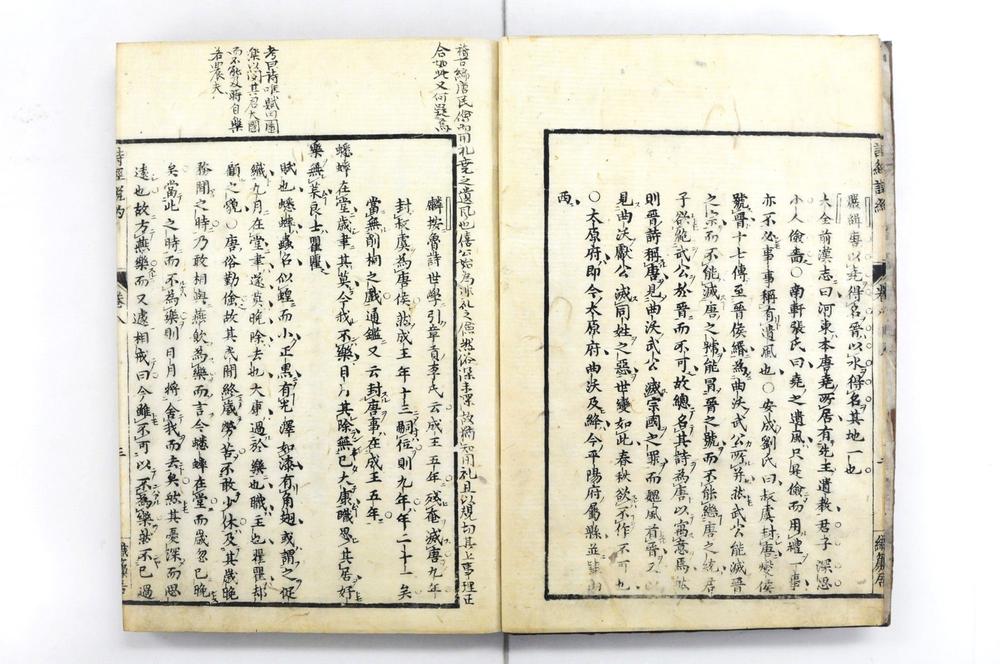 嚴緝專以堯得名晉以水得名其地一也
大全前漢志曰河東本唐堯所居有先王遺教君子深思
小人儉嗇○南軒張氏曰堯之遺風只是儉而用禮一事
亦不必事事稱有遺風也○安成劉氏曰叔虞封唐燮侯
號晉十七傳至晉侯緡為曲沃武公所并然武公能滅晉
之宗而不能滅唐之號能冒晉之號而不能繼唐之統君
子欲絕武公於晉而不可故總名其詩為唐以寓意焉
則晉詩稱唐見曲沃武公滅宗國之罪而魏風首晉又以
見曲沃獻公滅同姓之惡世變如此春秋欲不作不可也
○太原府即今太原府曲沃及絳今平陽府屬縣並山
西
詩經說約
卷八
合如此又何疑焉
麟按魯詩世學引章貢李氏云成王五年殘奄滅唐九年
封叔虞為唐侯然成王年十三嗣位則九年年二十一矣
當無削桐之戲通鑑又云封唐事在成王五年
考曰詩唯賦田園
樂以
而不
若農夫
蟋蟀在堂歲聿其莫今我不樂日月其除無已大康職思其居好
樂無荒良士瞿瞿
賦也蟋蟀蟲名似蝗而小正黑有光澤如漆有角翅或謂之促
織九月在堂聿遂莫晚除去也大康過於樂也職主也瞿瞿却
顧之貌○唐俗勤儉故其民間終歲勞苦不敢少休及其歲晚
務閒之時乃敢相與燕飲為樂而言今蟋蟀在堂而歲忽已晚
矣當此之時而不為樂則日月將舍我而去矣然其憂深而思
遠也故方燕樂而又遽相戒曰今雖不可以不為樂然不已過
三